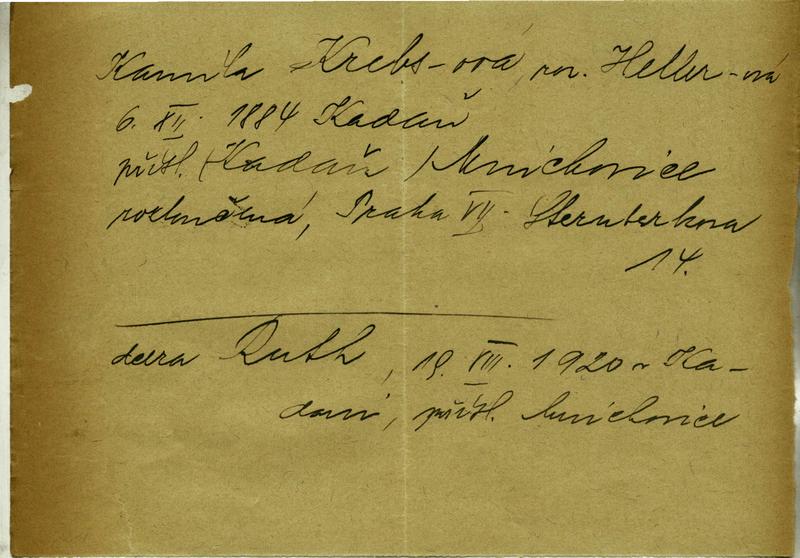 Kamila Krebs-ová, roz. Heller-ová
6. XII. 1884 Kadaň
přísl. (Kadaň) Mnichovice
rozloučená, Praha VII. Šternberkova
14.
dcera Ruth, 19. VIII. 1920 v Ka-
dani, přísl. Mnichovice